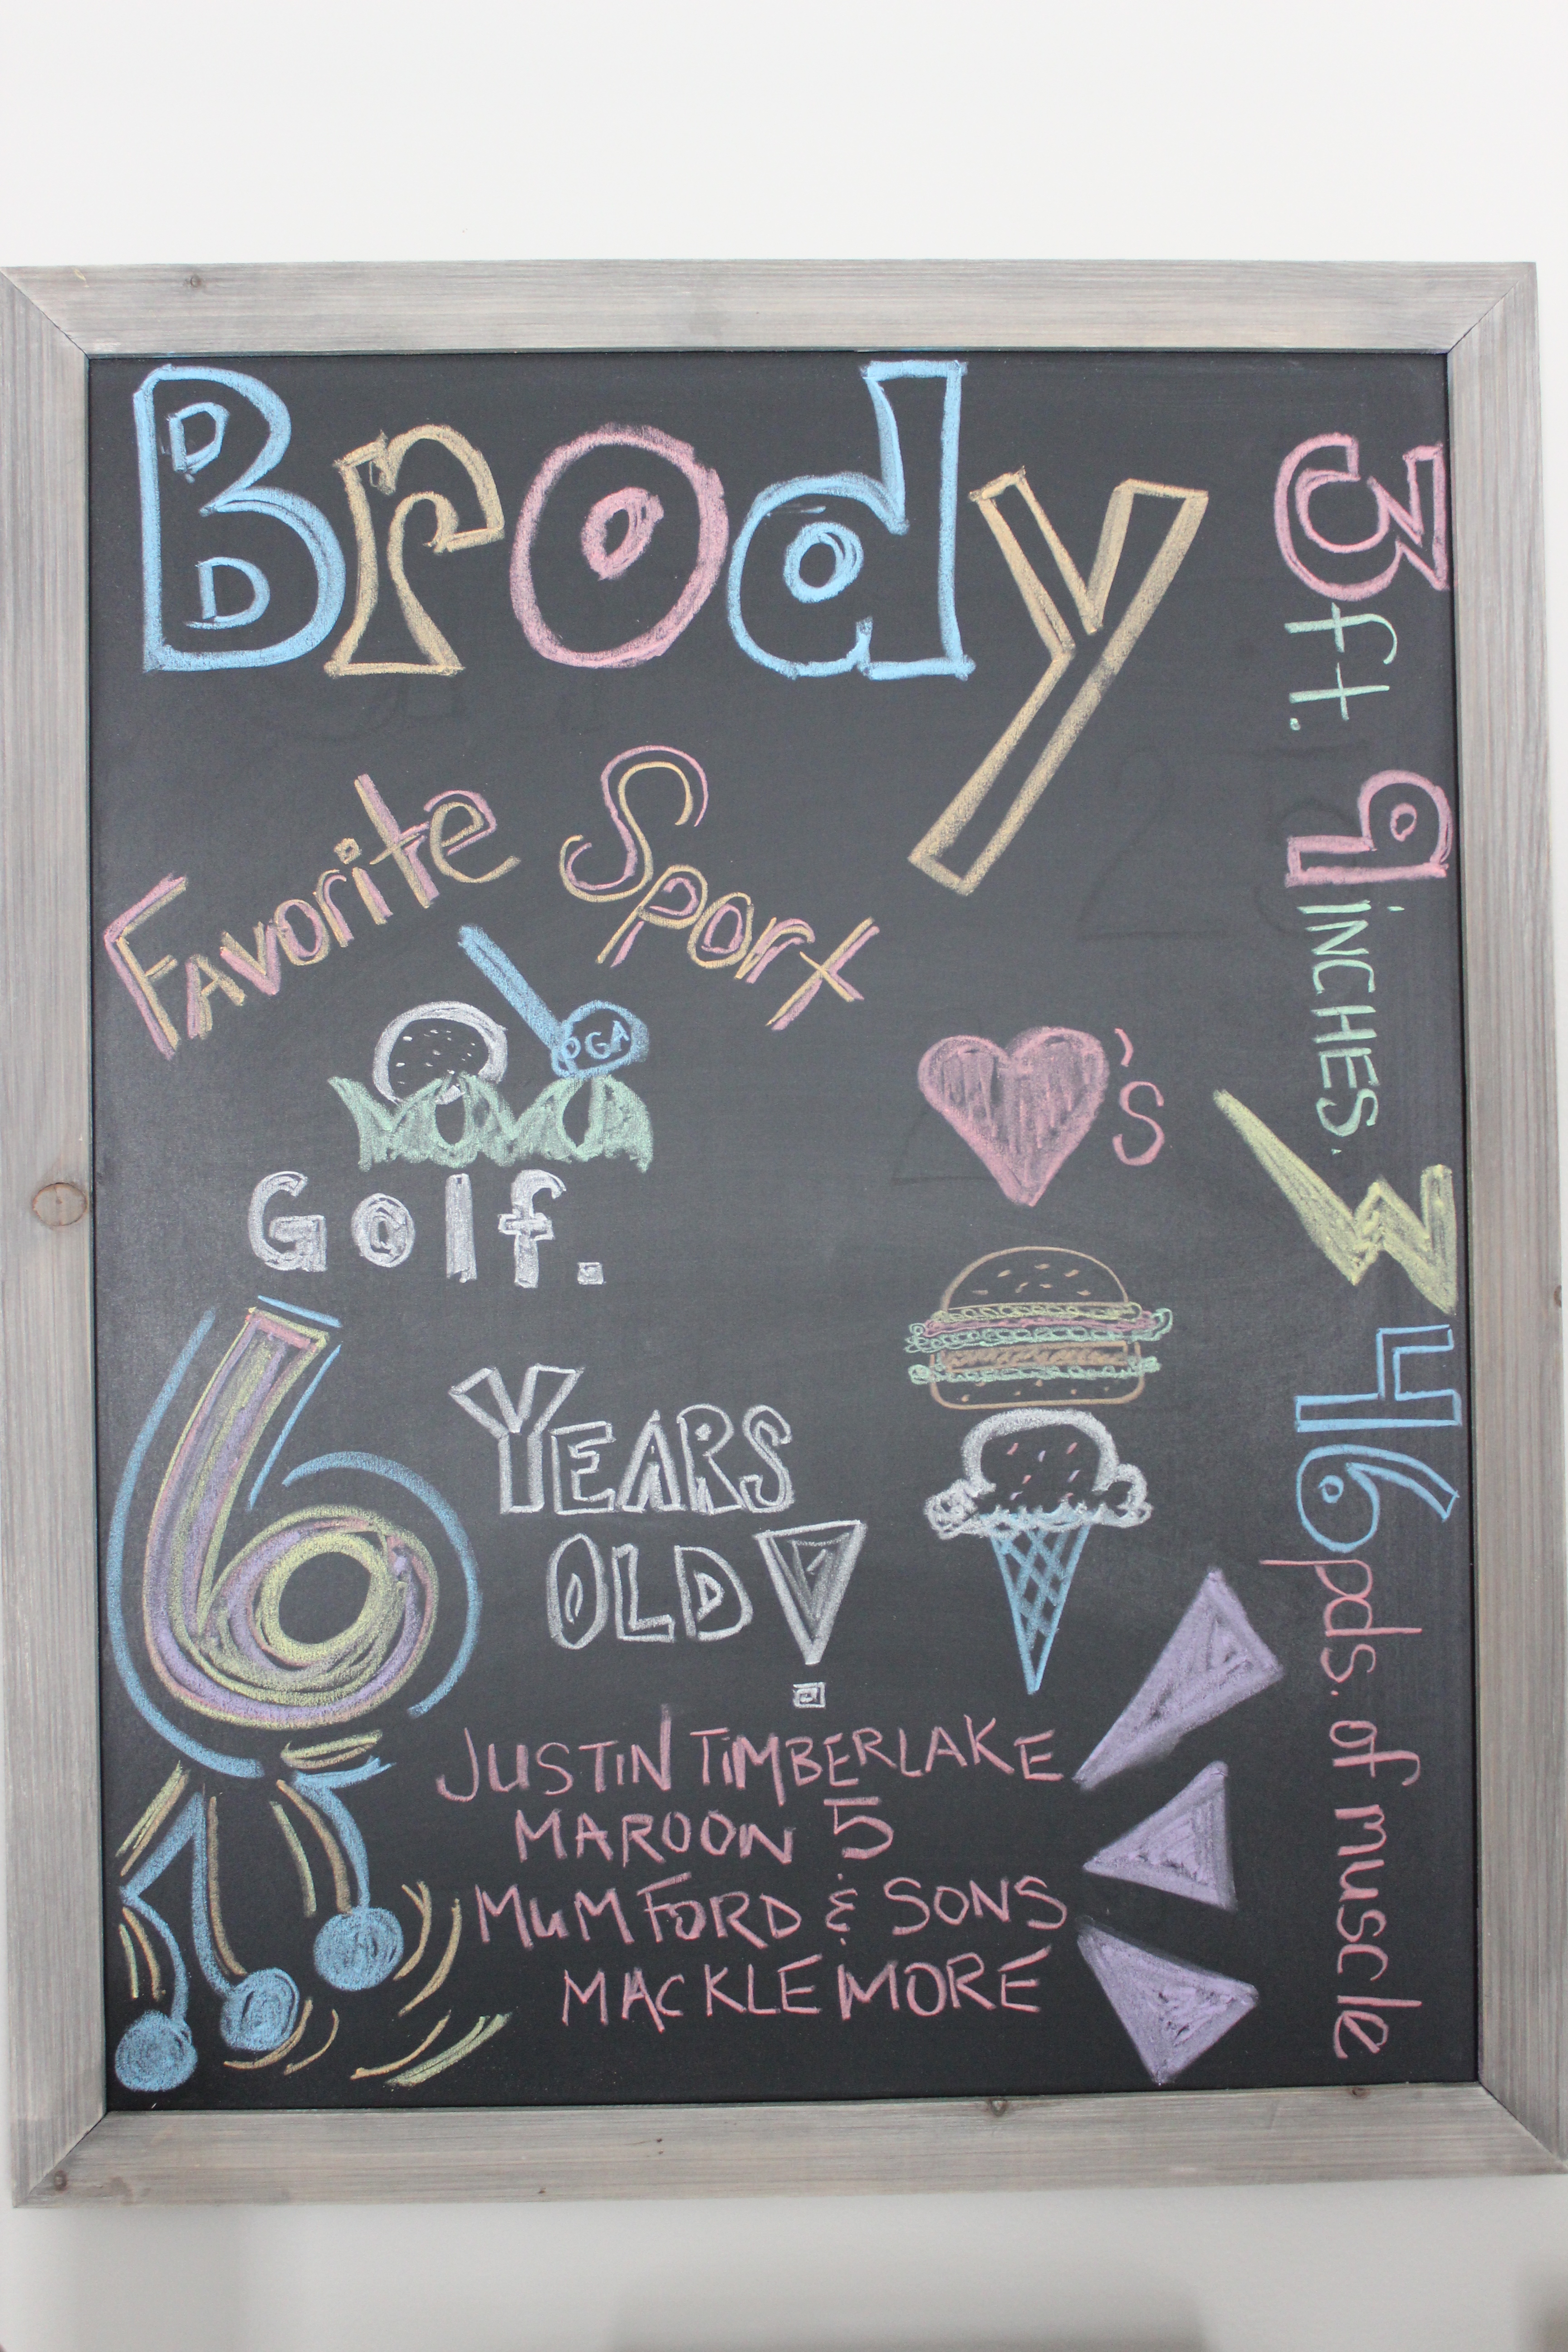 Brody
Favorite Sport
PGA
Golf.
6 YEARS
OLD!
♥'s
JUSTIN TIMBERLAKE
MAROON 5
MUMFORD & SONS
MACKLEMORE
3 ft. 9 INCHES.
46 pds. of muscle